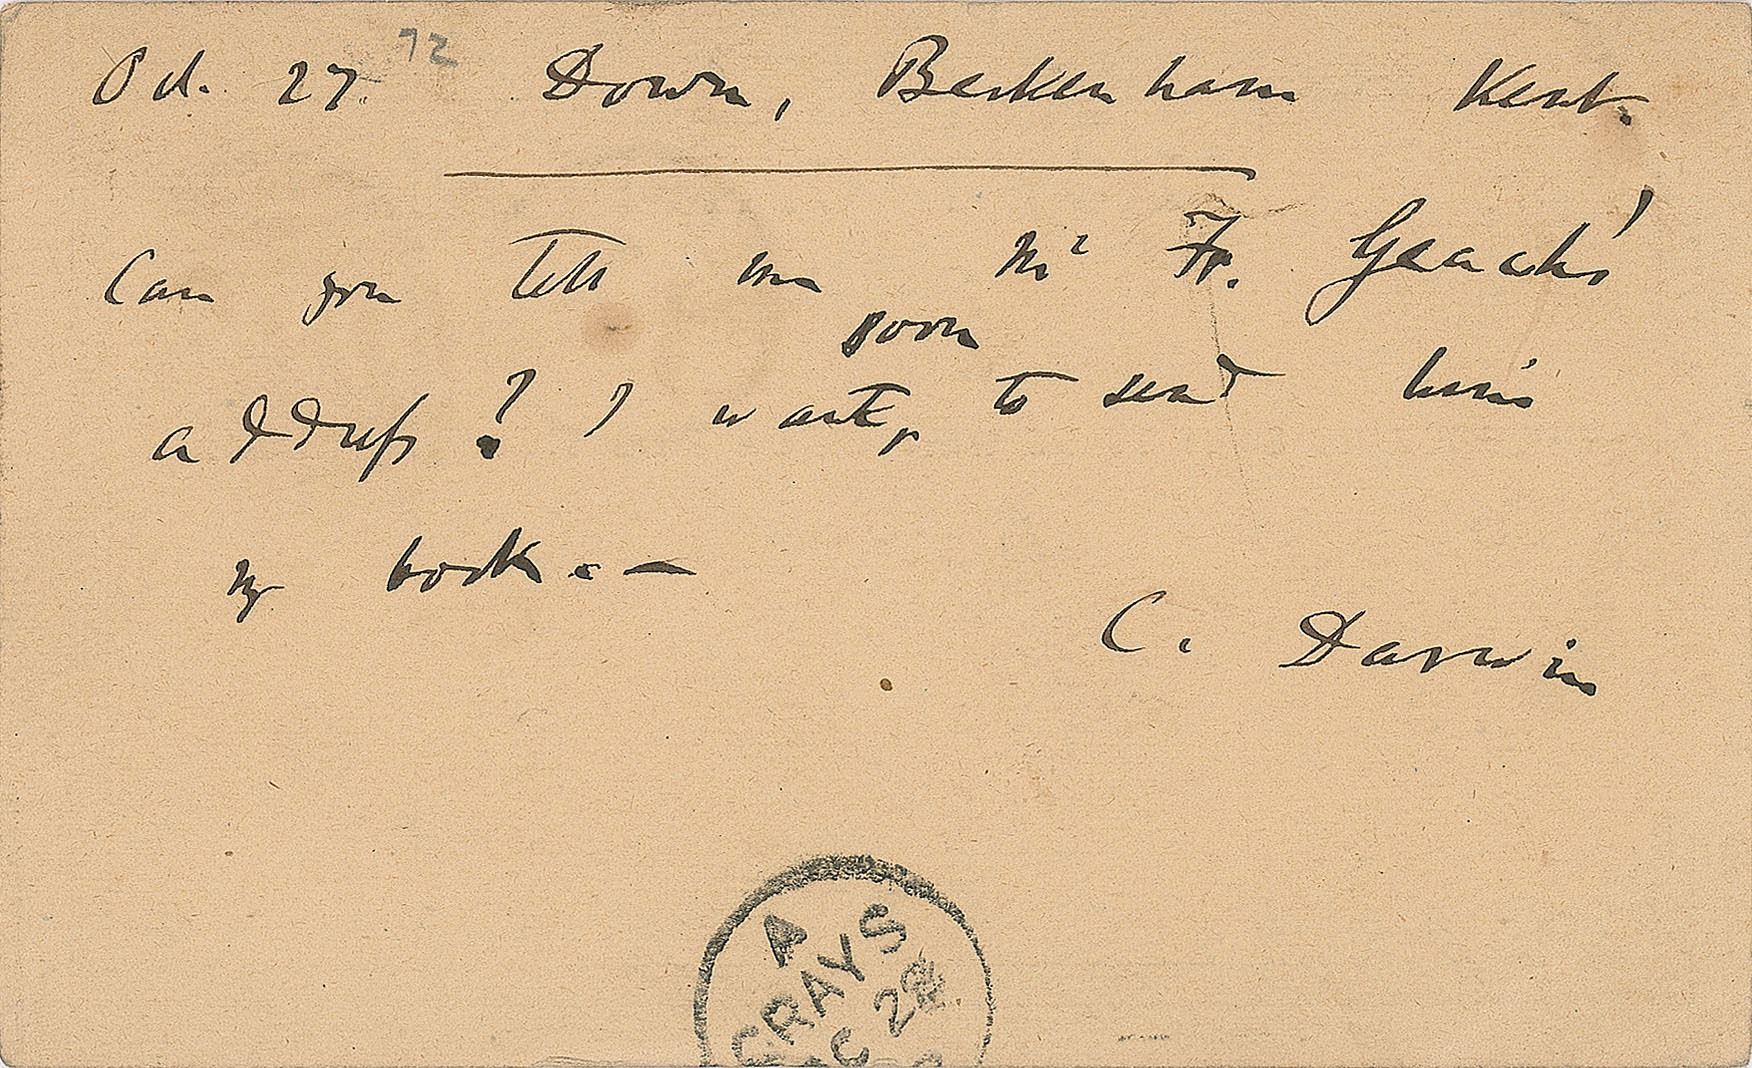 Oct. 27. 72 Down, Beckenham Kent.
Can you tell me Mr Fr. Geach's
soon
address? I want, to send him
my book.—
C. Darwin
A
GRAYS
OC 28